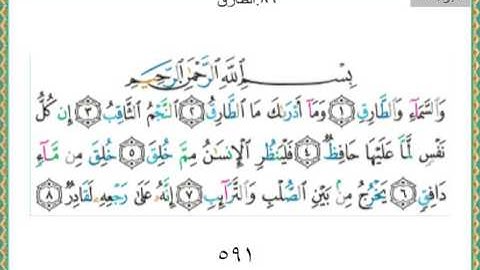 ٨٦.الطارق
بِسْمِ اللَّهِ الرَّحْمَٰنِ الرَّحِيمِ
وَالسَّمَآءِ وَالطَّارِقِ ١ وَمَآ أَدْرَىٰكَ مَا الطَّارِقُ ٢ النَّجْمُ الثَّاقِبُ ٣ إِن كُلُّ
نَفْسٍ لَّمَّا عَلَيْهَا حَافِظٌ ٤ فَلْيَنظُرِ الْإِنسَٰنُ مِمَّ خُلِقَ ٥ خُلِقَ مِن مَّآءٍ
دَافِقٍ ٦ يَخْرُجُ مِنۢ بَيْنِ الصُّلْبِ وَالتَّرَآئِبِ ٧ إِنَّهُۥ عَلَىٰ رَجْعِهِۦ لَقَادِرٌ ٨
٥٩١